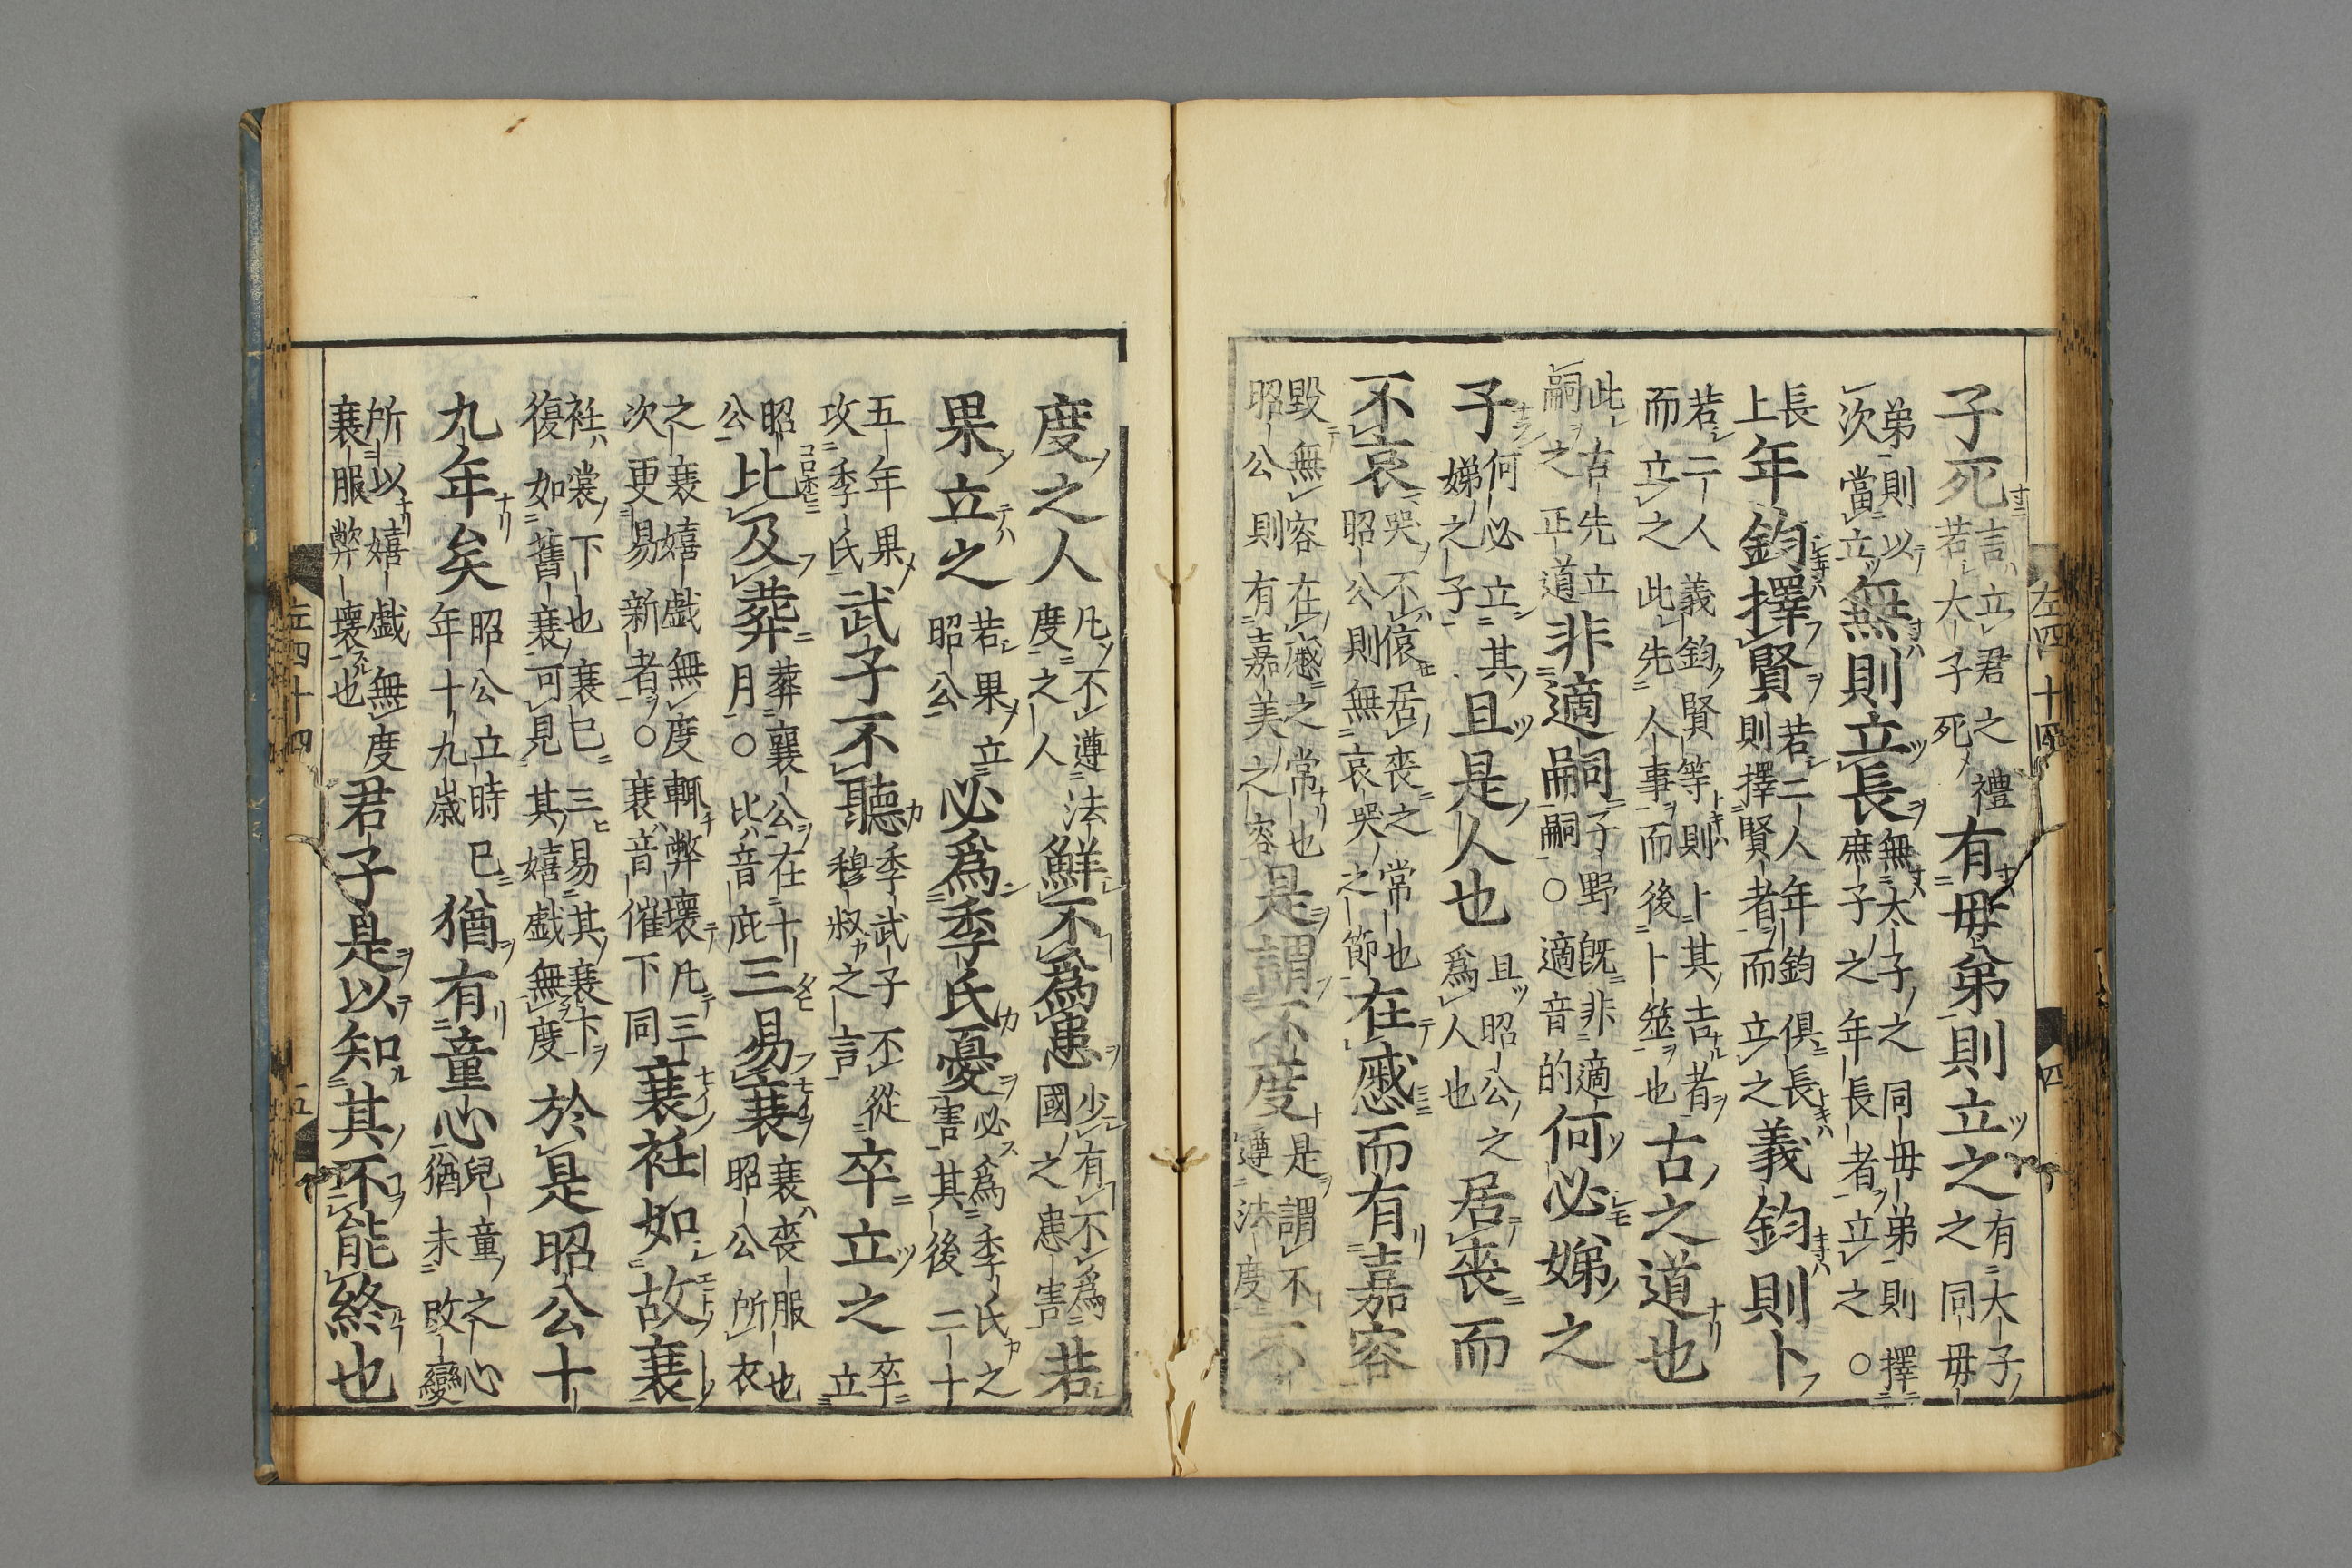 子死言立君之禮若大子死有毋弟則立之有大子之同毋
弟則以次當立無則立長無太子之同毋弟則擇庶子之年長者立之○
長上年鈞擇賢若二人年鈞則擇賢者而立之俱長義鈞則卜
若二人義鈞賢等則卜其吉者而立之此先人事而後卜筮也古之道也
此古先立嗣之正道非適嗣子野既非適嗣○適音的何必娣之
子何必立其娣之子且是人也且昭公之爲人也居喪而
不哀哭不偯居喪之常也昭公則無哀哭之節在慼而有嘉容
毀無容在慼之常也昭公則有嘉美之容是謂不度是謂不遵法度不
左四十四
四
度之人凡不遵法度之人鮮不爲患少有不爲國之患害若
果立之若果立昭公必爲季氏憂必爲季氏之害其後二十
五年果攻季氏武子不聽季武子不從穆叔之言卒立之卒立
昭公比及葬葬襄公在十月○比音庇三易衰衰喪服也昭公所衣
之衰嬉戲無度輒弊壞凡三次更易新者○衰音催下同衰衽如故衰
衽裳下也衰已三易其衰卞復如舊衰可見其嬉戲無度於是昭公十
九年矣昭公立時已年十九歲猶有童心兒童之心猶未改變
所以嬉戲無度衰服弊壞也君子是以知其不能終也
左四十四
五